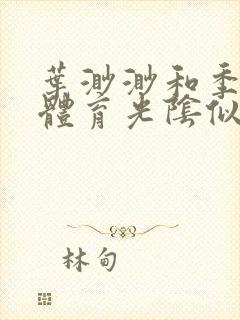 葉渺渺和季
體育光陰似
林甸